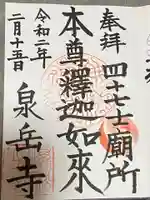 奉拝 四十七士廟所
本尊釋迦如來
令和二年
二月十五日
泉岳寺